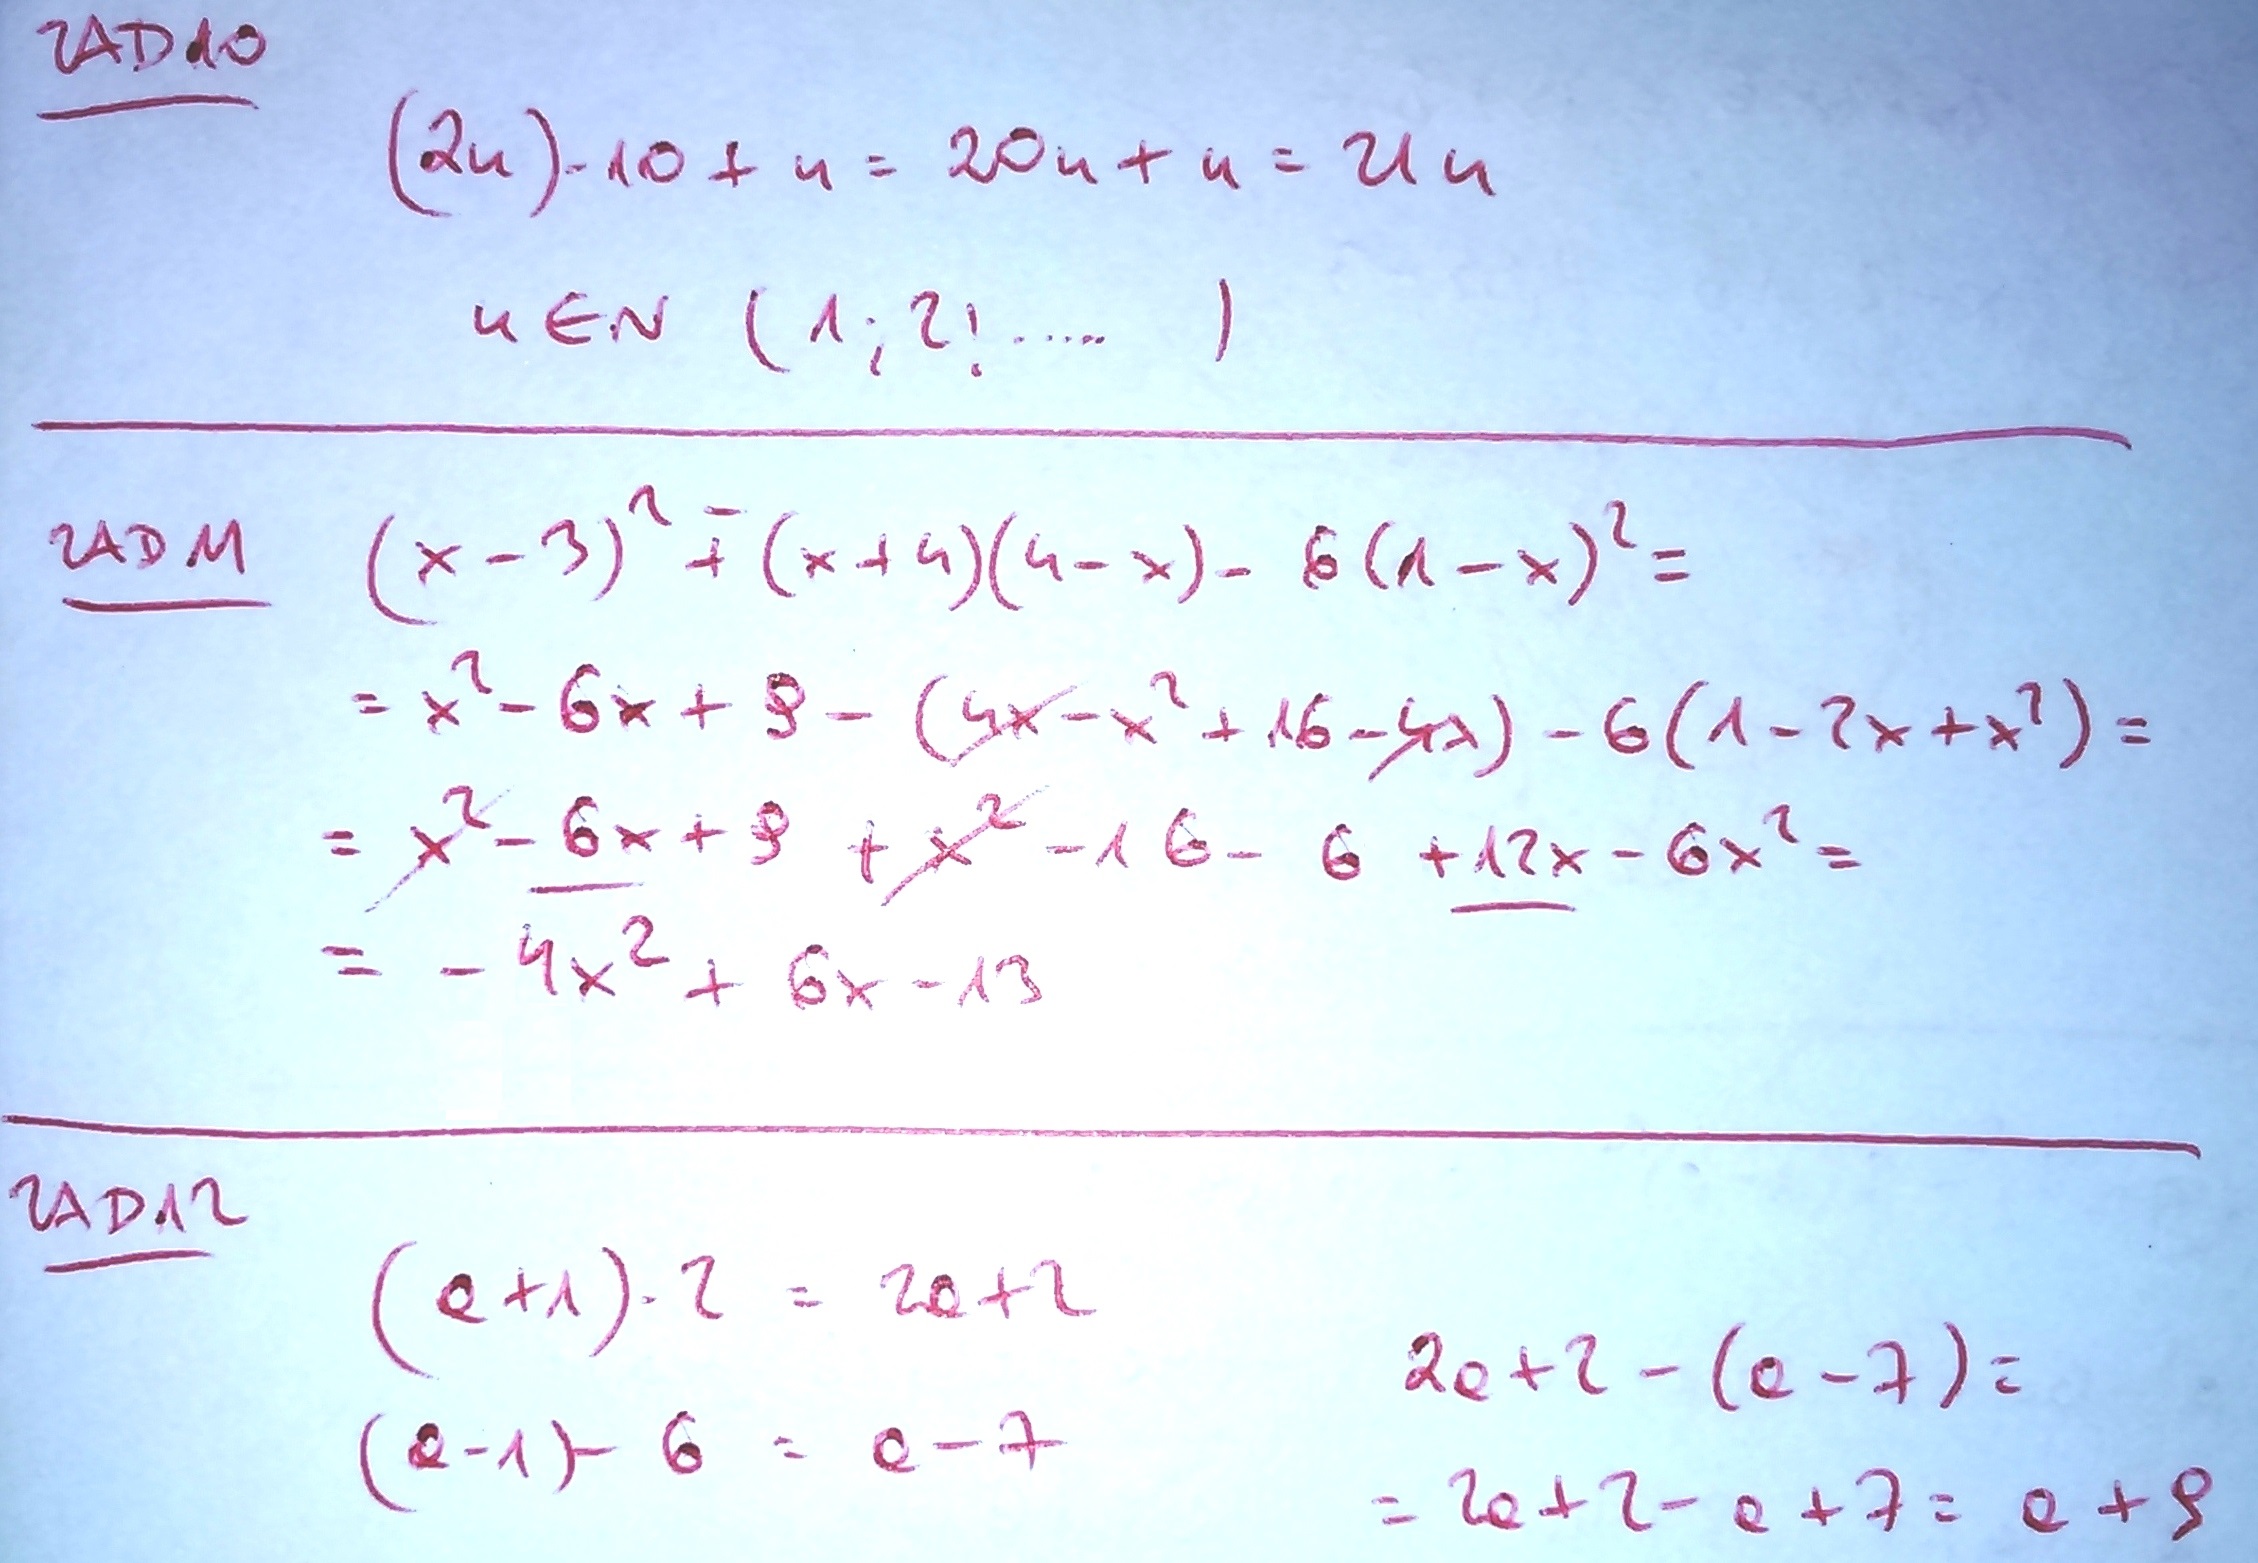 ZAD10
(2n)·10 + n = 20n + n = 21n
n ∈ N (1; 2; ..... )
ZAD11 (x-3)² ∓ (x+4)(4-x) - 6(1-x)² =
= x² - 6x + 9 - (4x - x² + 16 - 4x) - 6(1 - 2x + x²) =
= x² - 6x + 9 + x² - 16 - 6 + 12x - 6x² =
= -4x² + 6x - 13
ZAD12
(a+1)·2 = 2a+2
(a-1)- 6 = a-7
2a+2-(a-7)=
= 2a+2-a+7= a+9